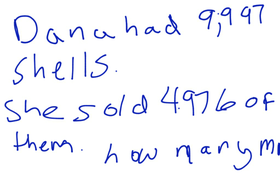 Dana had 9,997
shells.
She sold 4976 of
them. how many